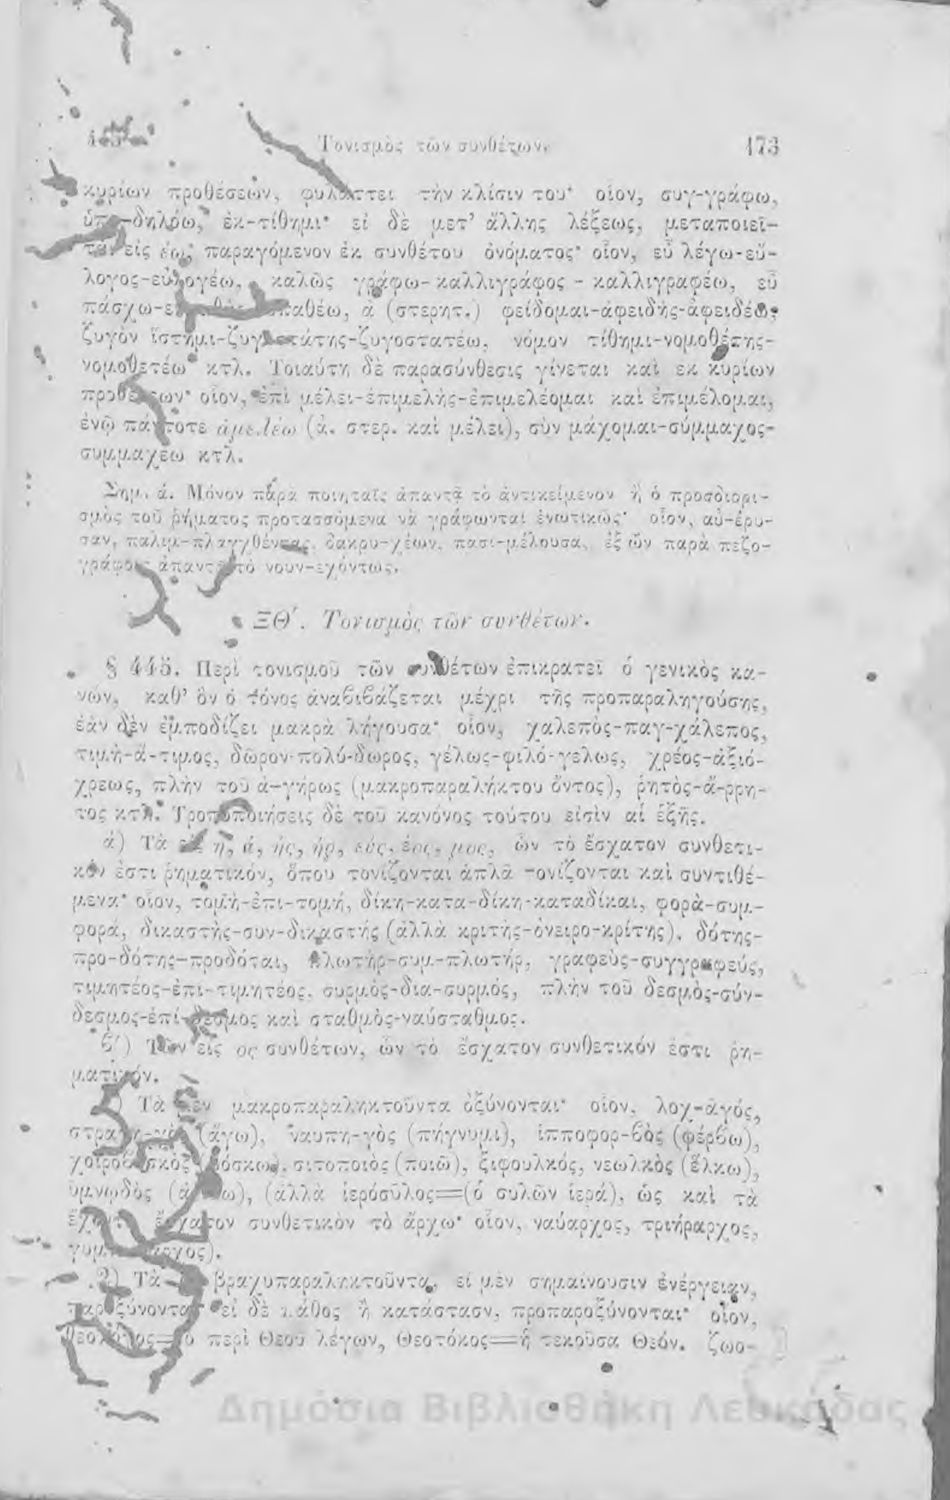 Τονισμὸς τῶν συνθέτων. 173
κυρίων προθέσεων, φυλάττει τὴν κλίσιν του· οἷον, συγ-γράφω,
ὑπο-δηλόω, ἐκ-τίθημι· εἰ δὲ μετ’ ἄλλης λέξεως, μεταποιεῖ-
ται εἰς έω, παραγόμενον ἐκ συνθέτου ὀνόματος· οἷον, εὖ λέγω-εὔ-
λογος-εὐλογέω, καλῶς γράφω-καλλιγράφος-καλλιγραφέω, εὖ
πάσχω- α (στερητ.) φείδομαι-ἀφειδής-ἀφειδέω,
ζυγὸν ἵστημι-ζυγοστάτης-ζυγοστατέω, νόμον τίθημι-νομοθέτης-
νομοθετέω κτλ. Τοιαύτη δὲ παρασύνθεσις γίνεται καὶ ἐκ κυρίων
προθέσεων· οἷον, ἐπὶ μέλει-ἐπιμελὴς-ἐπιμελέομαι καὶ ἐπιμέλομαι,
ἐνῷ πάντοτε ἀμελέω (ἀ. στερ. καὶ μέλει), σὺν μάχομαι-σύμμαχος-
συμμαχέω κτλ.
Σημ. ά. Μόνον παρὰ ποιηταῖς ἀπαντᾷ τὸ ἀντικείμενον ἢ ὁ προσδιορι-
σμὸς τοῦ ῥήματος προτασσόμενα νὰ γράφωνται ἑνωτικῶς· οἷον, αὐ-έρυ-
σαν, παλιμ-πλαγχθέντας, δακρυ-χέων, πασι-μέλουσα, ἐξ ὧν παρὰ πεζο-
γράφοις ἀπαντᾷ τὸ νουν-εχόντως.
ΞΘ΄. Τονισμὸς τῶν συνθέτων.
§ 445. Περὶ τονισμοῦ τῶν συνθέτων ἐπικρατεῖ ὁ γενικὸς κα-
νών, καθ’ ὃν ὁ τόνος ἀναβιβάζεται μέχρι τῆς προπαραληγούσης,
ἐὰν δὲν ἐμποδίζει μακρὰ λήγουσα· οἷον, χαλεπὸς-παγ-χάλεπος,
τιμὴ-ἄ-τιμος, δῶρον-πολύ-δωρος, γέλως-φιλό-γελως, χρέος-ἀξιό-
χρεως, πλὴν τοῦ ἀ-γήρως (μακροπαραλήκτου ὄντος), ῥητὸς-ἄ-ρρη-
τος κτλ. Τροποποιήσεις δὲ τοῦ κανόνος τούτου εἰσὶν αἱ ἑξῆς.
ά) Τὰ εἰς ή, ά, ής, ήρ, εύς, έος, μος, ὧν τὸ ἔσχατον συνθετι-
κόν ἐστι ῥηματικόν, ὅπου τονίζονται ἁπλᾶ τονίζονται καὶ συντιθέ-
μενα· οἷον, τομὴ-ἐπι-τομή, δίκη-κατα-δίκη-καταδίκαι, φορὰ-συμ-
φορά, δικαστὴς-συν-δικαστής (ἀλλὰ κριτὴς-ὀνειρο-κρίτης), δότης-
προ-δότης-προδόται, πλωτὴρ-συμ-πλωτήρ, γραφεὺς-συγγραφεύς,
τιμητέος-ἐπι-τιμητέος, συρμὸς-δια-συρμός, πλὴν τοῦ δεσμὸς-σύν-
δεσμος-ἐπί-δεσμος καὶ σταθμὸς-ναύσταθμος.
β΄) Τῶν εἰς ος συνθέτων, ὧν τὸ ἔσχατον συνθετικόν ἐστι ῥη-
ματικόν.
Τὰ μὲν μακροπαραληκτοῦντα ὀξύνονται· οἷον, λοχ-ᾱγός,
(ἄγω), ναυπη-γὸς (πήγνυμι), ἱπποφορ-βὸς (φέρβω),
(βόσκω), σιτοποιὸς (ποιῶ), ξιφουλκός, νεωλκὸς (ἕλκω),
ὑμνῳδὸς (ἀλλὰ ἱερόσῦλος=(ὁ συλῶν ἱερά), ὡς καὶ τὰ
ἔσχατον συνθετικὸν τὸ ἄρχω· οἷον, ναύαρχος, τριήραρχος,
2) Τὰ βραχυπαραληκτοῦντα, εἰ μὲν σημαίνουσιν ἐνέργειαν,
παροξύνονται· εἰ δὲ πάθος ἢ κατάστασν, προπαροξύνονται· οἷον,
περὶ Θεοῦ λέγων, Θεοτόκος=ἡ τεκοῦσα Θεόν. ζωο-
Δημόσια Βιβλιοθήκη Λευκάδας